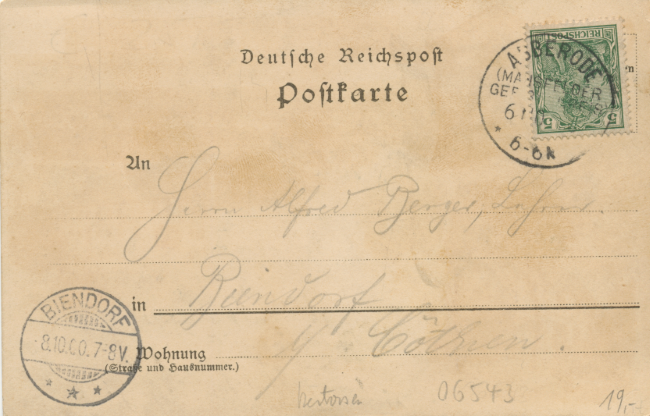 Deutsche Reichspost
Postkarte
ABBERODE
GEB
6
6-6N
REICHSPOST
5 5
An
Herrn Alfred Berger, Lehrer
in Biendorf
b/ Cöthen.
BIENDORF
8.10.00.7-8V.
Wohnung
(Straße und Hausnummer.)
06543
19,-